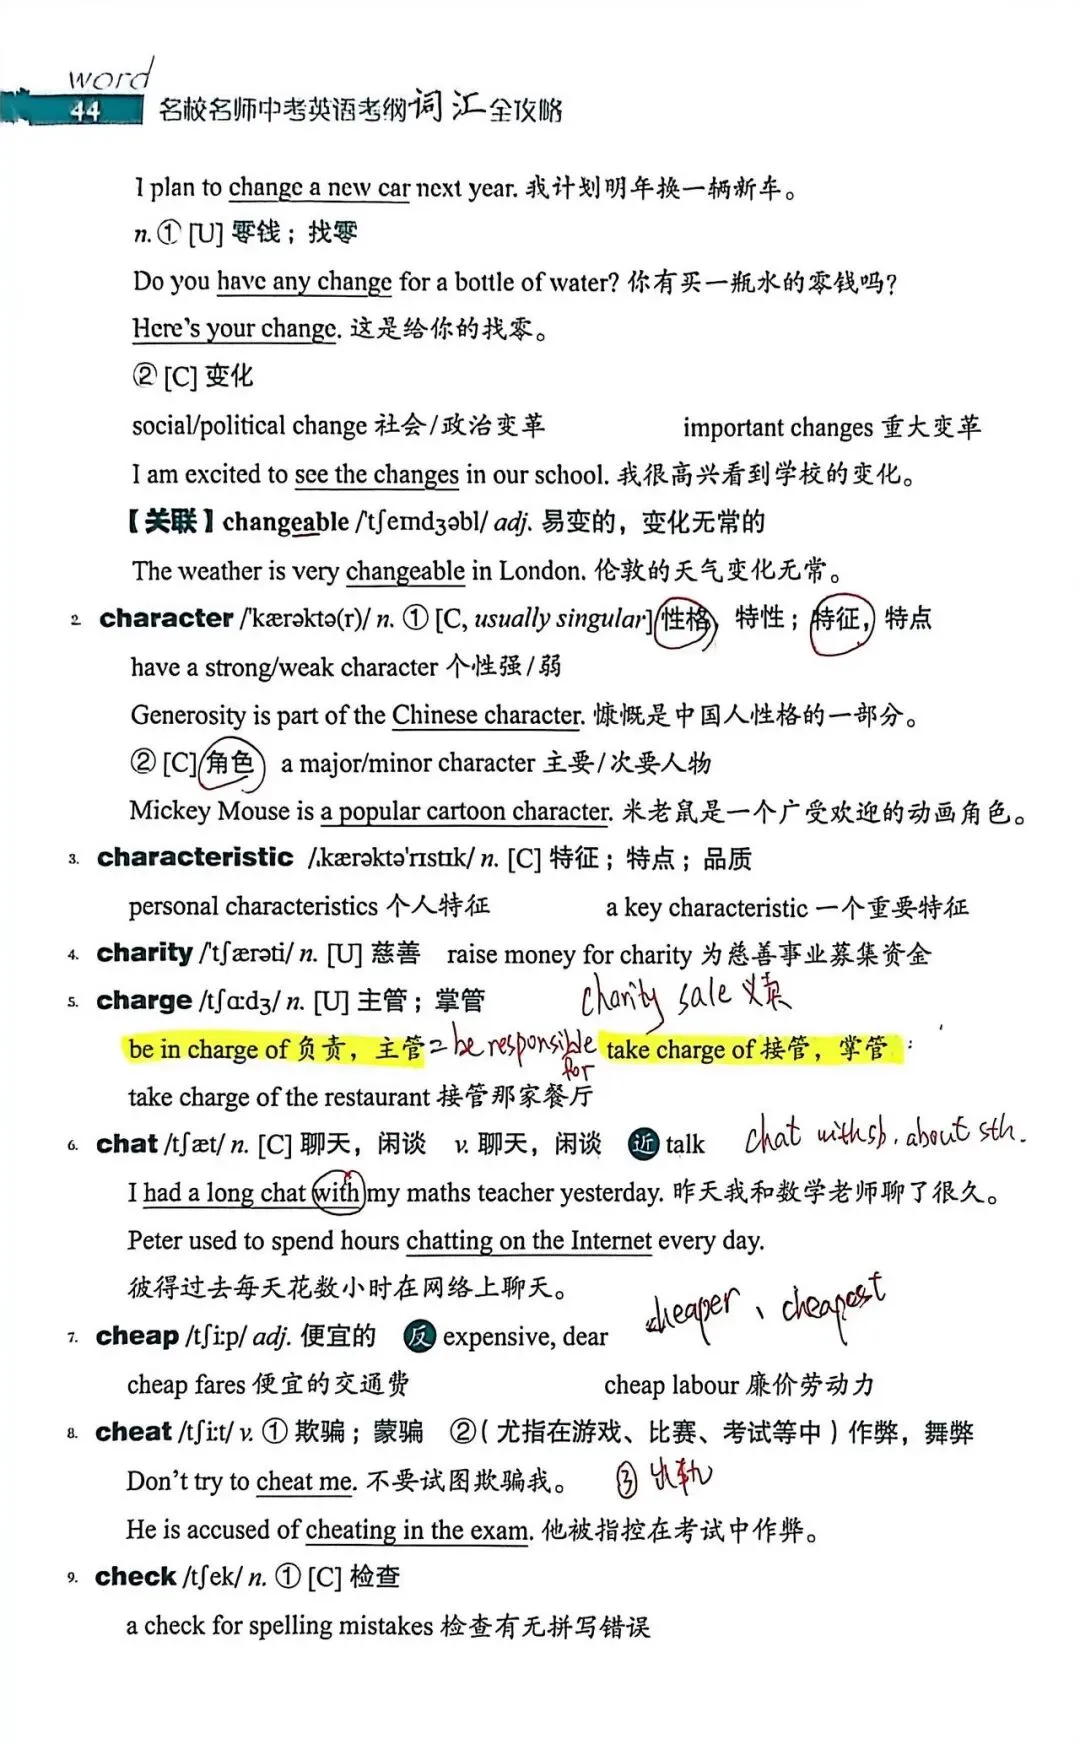 word
44 名校名师中考英语考纲词汇全攻略
I plan to change a new car next year. 我计划明年换一辆新车。
n. ① [U] 零钱；找零
Do you have any change for a bottle of water? 你有买一瓶水的零钱吗？
Here's your change. 这是给你的找零。
② [C] 变化
social/political change 社会/政治变革 important changes 重大变革
I am excited to see the changes in our school. 我很高兴看到学校的变化。
【关联】changeable /'tʃemdʒəbl/ adj. 易变的，变化无常的
The weather is very changeable in London. 伦敦的天气变化无常。
2. character /'kærəktə(r)/ n. ① [C, usually singular] 性格，特性；特征，特点
have a strong/weak character 个性强/弱
Generosity is part of the Chinese character. 慷慨是中国人性格的一部分。
② [C] 角色 a major/minor character 主要/次要人物
Mickey Mouse is a popular cartoon character. 米老鼠是一个广受欢迎的动画角色。
3. characteristic /ˌkærəktə'rɪstɪk/ n. [C] 特征；特点；品质
personal characteristics 个人特征 a key characteristic 一个重要特征
4. charity /'tʃærəti/ n. [U] 慈善 raise money for charity 为慈善事业募集资金
5. charge /tʃɑːdʒ/ n. [U] 主管；掌管 charity sale 义卖
be in charge of 负责，主管 = be responsible for take charge of 接管，掌管
take charge of the restaurant 接管那家餐厅
6. chat /tʃæt/ n. [C] 聊天，闲谈 v. 聊天，闲谈 近 talk chat with sb. about sth.
I had a long chat with my maths teacher yesterday. 昨天我和数学老师聊了很久。
Peter used to spend hours chatting on the Internet every day.
彼得过去每天花数小时在网络上聊天。
cheaper、cheapest
7. cheap /tʃiːp/ adj. 便宜的 反 expensive, dear
cheap fares 便宜的交通费 cheap labour 廉价劳动力
8. cheat /tʃiːt/ v. ① 欺骗；蒙骗 ②（尤指在游戏、比赛、考试等中）作弊，舞弊
Don't try to cheat me. 不要试图欺骗我。 ③ 出轨
He is accused of cheating in the exam. 他被指控在考试中作弊。
9. check /tʃek/ n. ① [C] 检查
a check for spelling mistakes 检查有无拼写错误